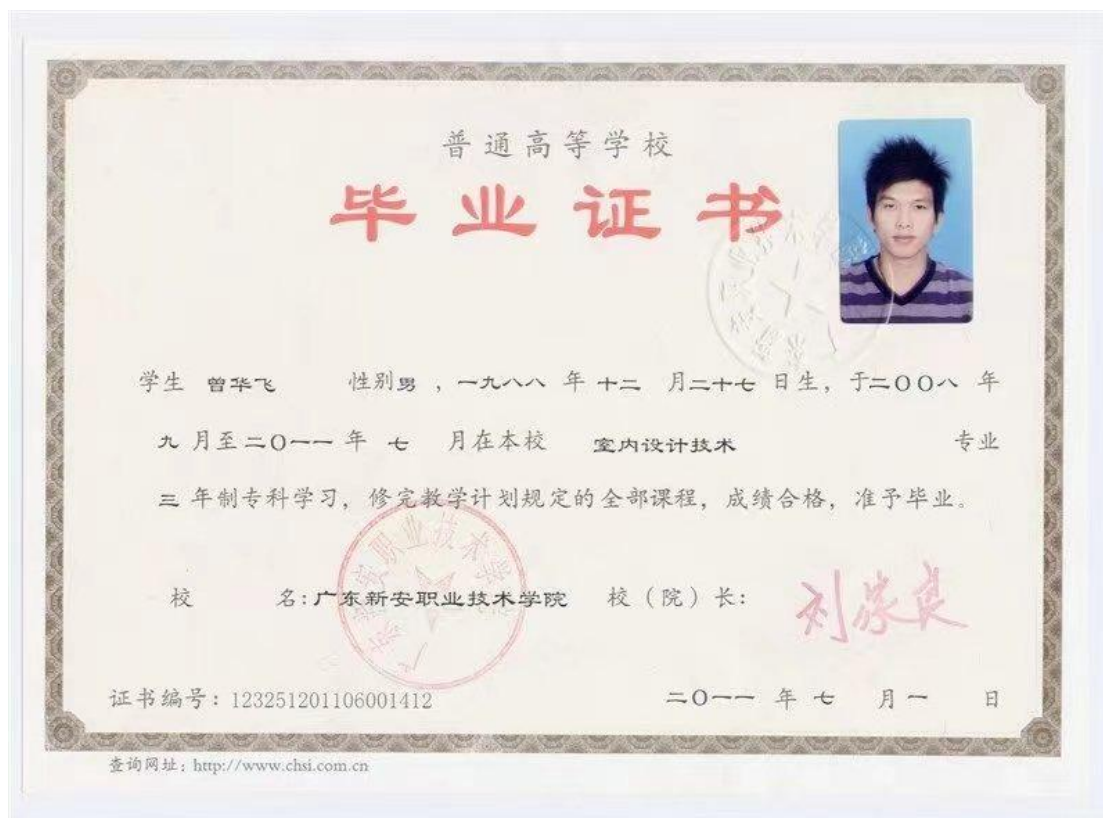 普通高等学校
毕业证书
学生 曾华飞 性别男 ，一九八八 年 十二 月二十七 日生，于二〇〇八 年
九 月至二〇一一 年 七 月在本校 室内设计技术 专业
三 年制专科学习，修完教学计划规定的全部课程，成绩合格，准予毕业。
校 名:广东新安职业技术学院 校（院）长: 刘家良
广东新安职业技术学院
证书编号：123251201106001412 二〇一一 年 七 月 一 日
查询网址：http://www.chsi.com.cn